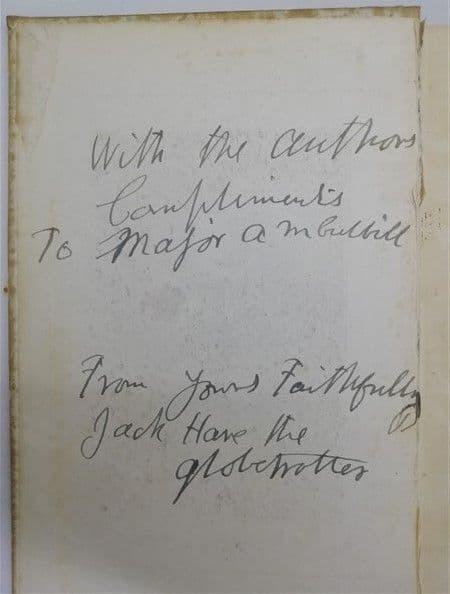 With the authors
Compliments
To Major
From Yours Faithfully
Jack Hare the
globetrotter